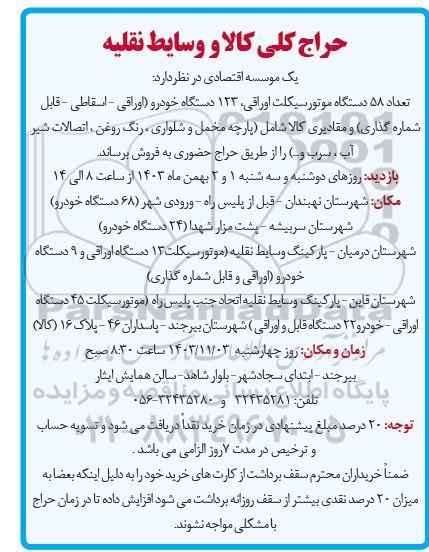 حراج کلی کالا و وسایط نقلیه
یک موسسه اقتصادی در نظر دارد:
تعداد ۵۸ دستگاه موتورسیکلت اوراقی، ۱۲۳ دستگاه خودرو (اوراقی - اسقاطی - قابل
شماره گذاری) و مقادیری کالا شامل (پارچه مخمل و شلواری، رنگ روغن، اتصالات شیر
آب، سرب و...) را از طریق حراج حضوری به فروش برساند.
بازدید: روزهای دوشنبه و سه شنبه ۱ و ۲ بهمن ماه ۱۴۰۳ از ساعت ۸ الی ۱۴
مکان: شهرستان نهبندان - قبل از پلیس راه - ورودی شهر (۶۸ دستگاه خودرو)
شهرستان سربیشه - پشت مزار شهدا (۲۴ دستگاه خودرو)
شهرستان درمیان - پارکینگ وسایط نقلیه (موتورسیکلت ۱۳ دستگاه اوراقی و ۹ دستگاه
خودرو (اوراقی و قابل شماره گذاری)
شهرستان قاین - پارکینگ وسایط نقلیه اتحاد جنب پلیس راه (موتورسیکلت ۴۵ دستگاه
اوراقی - خودرو ۲۲ دستگاه قابل و اوراقی) شهرستان بیرجند - پاسداران ۴۶ - پلاک ۱۶ (کالا)
زمان و مکان: روز چهارشنبه ۱۴۰۳/۱۱/۰۳ ساعت ۸:۳۰ صبح
بیرجند - ابتدای سجادشهر - بلوار شاهد - سالن همایش ایثار
تلفن: ۳۲۴۳۵۲۸۱ و ۳۲۴۳۵۲۸۰-۰۵۶
توجه: ۲۰ درصد مبلغ پیشنهادی در زمان خرید نقداً دریافت می شود و تسویه حساب
و ترخیص در مدت ۷ روز الزامی می باشد.
ضمناً خریداران محترم سقف برداشت از کارت های خرید خود را به دلیل اینکه بعضا به
میزان ۲۰ درصد نقدی بیشتر از سقف روزانه برداشت می شود افزایش داده تا در زمان حراج
با مشکلی مواجه نشوند.
پایگاه اطلاع رسانی مناقصه و مزایده